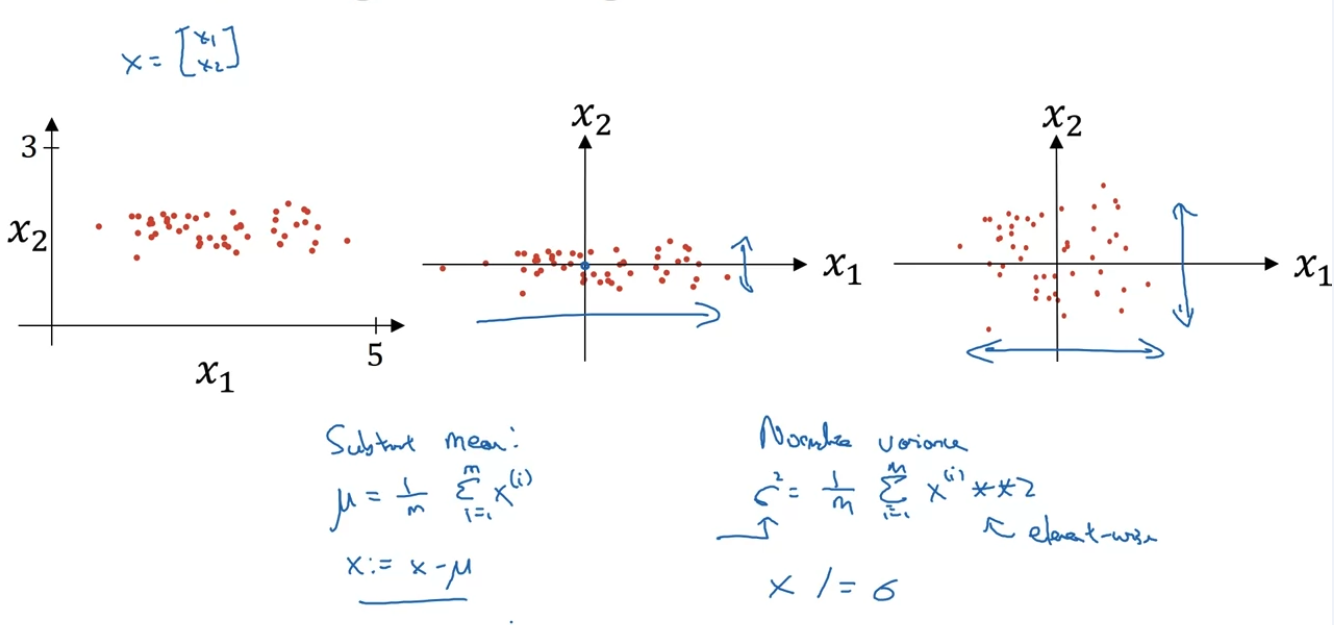 x = [x₁ x₂]
3
x₂
5
x₁
x₂
x₁
x₂
x₁
Subtract mean:
μ = 1/m Σᵢ₌₁ᵐ x⁽ⁱ⁾
x := x - μ
Normalize variance
σ² = 1/m Σᵢ₌₁ᵐ x⁽ⁱ⁾ **2
element-wise
x /= σ